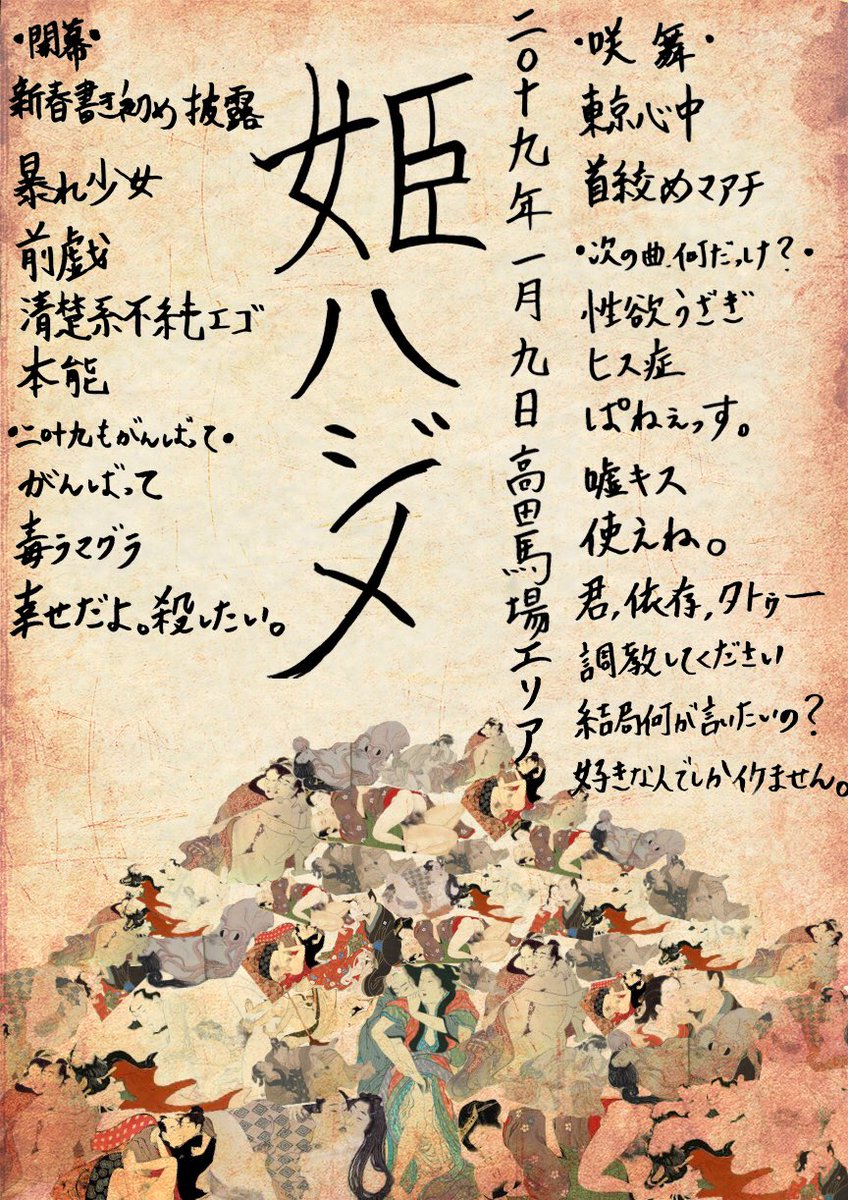 ・咲 舞・
東京心中
首絞めマアチ
・次の曲、何だっけ?・
性欲うさぎ
ヒス症
ぱねぇっす。
嘘キス
使えね。
君,依存,タトゥー
調教してください
結局何が言いたいの?
好きな人でしかイケません。
二〇十九年一月九日高田馬場エリア
姫ハジメ
・開幕・
新春書き初め披露
暴れ少女
前戯
清楚系不純エゴ
本能
・二〇十九もがんばって・
がんばって
毒ラマグラ
幸せだよ。殺したい。